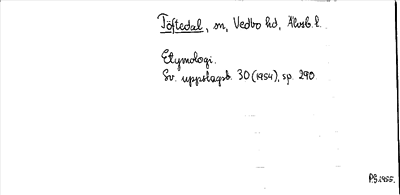 Töftedal, sn, Vedbo hd, Älvsb. l.
Etymologi.
Sv. uppslagsb. 30 (1954), sp. 290.
P.S. 1955.